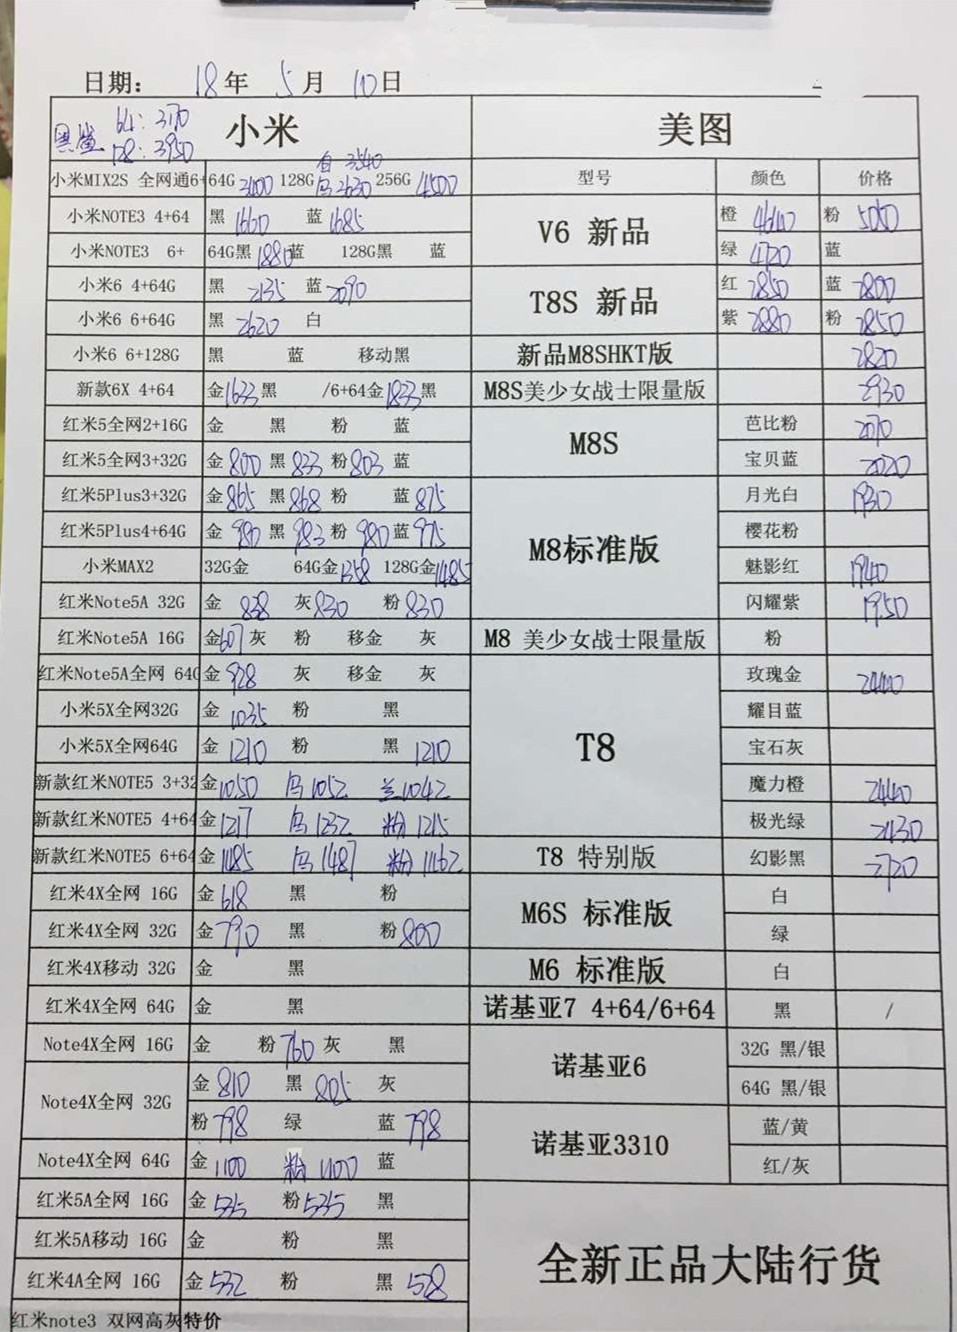 日期： 18年 5月 10日
黑鲨 64: 3170 小米 美图
128: 3950
白 3540
小米MIX2S 全网通6+ 64G 3400 128G 256G 4500 型号 颜色 价格
小米NOTE3 4+64 黑 1660 蓝 1685 V6 新品 橙 4640 粉 5050
小米NOTE3 6+ 64G黑 1880 蓝 128G黑 蓝 绿 4720 蓝
小米6 4+64G 黑 2135 蓝 2090 T8S 新品 红 2850 蓝 2800
小米6 6+64G 黑 2620 白 紫 2880 粉 2850
小米6 6+128G 黑 蓝 移动黑 新品M8SHKT版 2820
新款6X 4+64 金 1633 黑 /6+64金 1833 黑 M8S美少女战士限量版 2930
红米5全网2+16G 金 黑 粉 蓝 M8S 芭比粉 2070
红米5全网3+32G 金 800 黑 833 粉 803 蓝 宝贝蓝 2020
红米5Plus3+32G 金 865 黑 868 粉 蓝 875 M8标准版 月光白 1930
红米5Plus4+64G 金 980 黑 983 粉 980 蓝 975 樱花粉
小米MAX2 32G金 64G金 1358 128G金 1485 魅影红 1940
红米Note5A 32G 金 838 灰 830 粉 830 闪耀紫 1950
红米Note5A 16G 金 607 灰 粉 移金 灰 M8 美少女战士限量版 粉
红米Note5A全网 64G 金 928 灰 移金 灰 T8 玫瑰金 2440
小米5X全网32G 金 1035 粉 黑 耀目蓝
小米5X全网64G 金 1210 粉 黑 1210 宝石灰
新款红米NOTE5 3+32 金 1050 乌 1052 兰 1042 魔力橙 2440
新款红米NOTE5 4+64 金 1217 乌 1232 粉 1215 极光绿 2430
新款红米NOTE5 6+64 金 1485 乌 1487 粉 1462 T8 特别版 幻影黑 2720
红米4X全网 16G 金 618 黑 粉 M6S 标准版 白
红米4X全网 32G 金 790 黑 粉 800 绿
红米4X移动 32G 金 黑 M6 标准版 白
红米4X全网 64G 金 黑 诺基亚7 4+64/6+64 黑 /
Note4X全网 16G 金 粉 760 灰 黑 诺基亚6 32G 黑/银
Note4X全网 32G 金 810 黑 805 灰 64G 黑/银
粉 798 绿 蓝 798 诺基亚3310 蓝/黄
Note4X全网 64G 金 1100 粉 1100 蓝 红/灰
红米5A全网 16G 金 535 粉 535 黑 全新正品大陆行货
红米5A移动 16G 金 粉 黑
红米4A全网 16G 金 532 粉 黑 528
红米note3 双网高灰特价